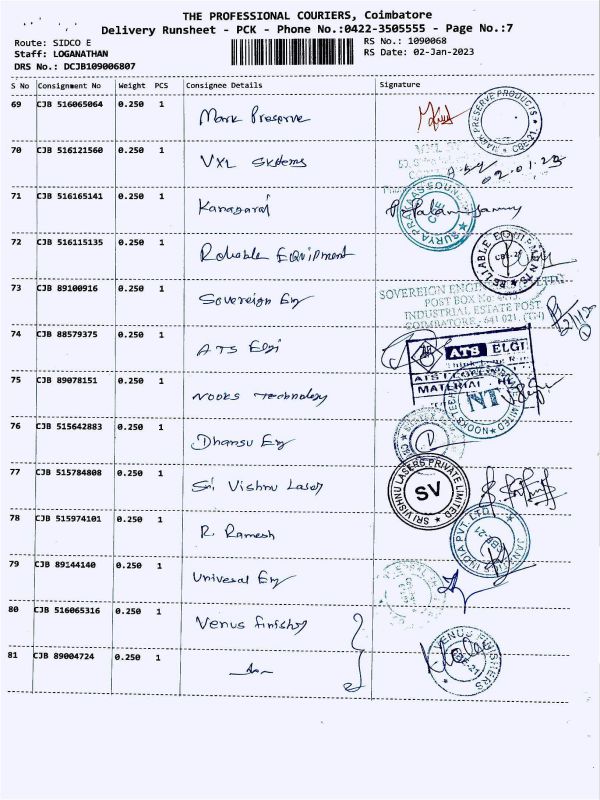 THE PROFESSIONAL COURIERS, Coimbatore
Delivery Runsheet - PCK - Phone No.:0422-3505555 - Page No.:7
Route: SIDCO E
Staff: LOGANATHAN
DRS No.: DCJB109006807
RS No.: 1090068
RS Date: 02-Jan-2023
S No Consignment No Weight PCS Consignee Details Signature
69 CJB 516065064 0.250 1 Mark Preserve
MARK PRESERVE PRODUCTS * CBE-21. *
70 CJB 516121560 0.250 1 VXL Systems
02.01.23
71 CJB 516165141 0.250 1 Kanagaraj
SURYA PRAKAAS FOUNDRY CBE
72 CJB 516115135 0.250 1 Reliable Equipment
RELIABLE EQUIPMENTS CBE-21
73 CJB 89100916 0.250 1 Sovereign Eng
SOVEREIGN
POST BOX No.
INDUSTRIAL ESTATE POST.
COIMBATORE - 641 021. (TN)
74 CJB 88579375 0.250 1 ATS Elgi
ATS ELGI
MATERIAL
75 CJB 89078151 0.250 1 Nooks Technology
NT
76 CJB 515642883 0.250 1 Dhansu Eng
77 CJB 515784808 0.250 1 Sri Vishnu Laser
SRI VISHNU LASERS PRIVATE LIMITED
SV
78 CJB 515974101 0.250 1 R. Ramesh
INDIA PVT. LTD.
CBE-21
79 CJB 89144140 0.250 1 Universal Eng
80 CJB 516065316 0.250 1 Venus finisher
VENUS FINISHERS
81 CJB 89004724 0.250 1